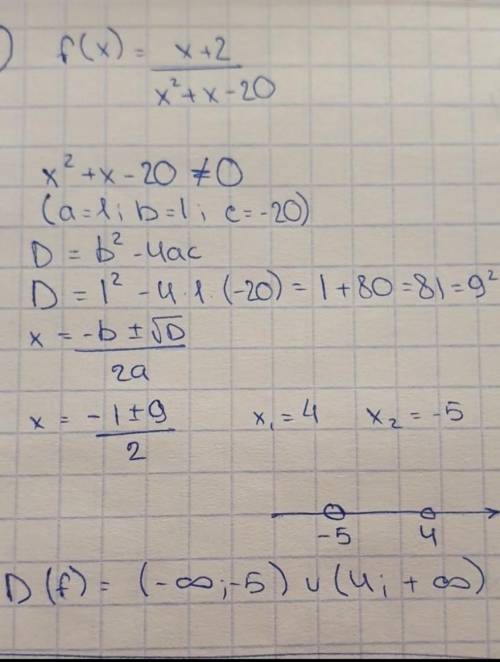 ) f(x) = x+2 / x²+x-20
x²+x-20 ≠ 0
(a=1; b=1; c=-20)
D = b² - 4ac
D = 1² - 4·1·(-20) = 1+80 = 81 = 9²
x = -b ± √D / 2a
x = -1±9 / 2 x₁ = 4 x₂ = -5
-5 4
D(f) = (-∞; -5) ∪ (4; +∞)